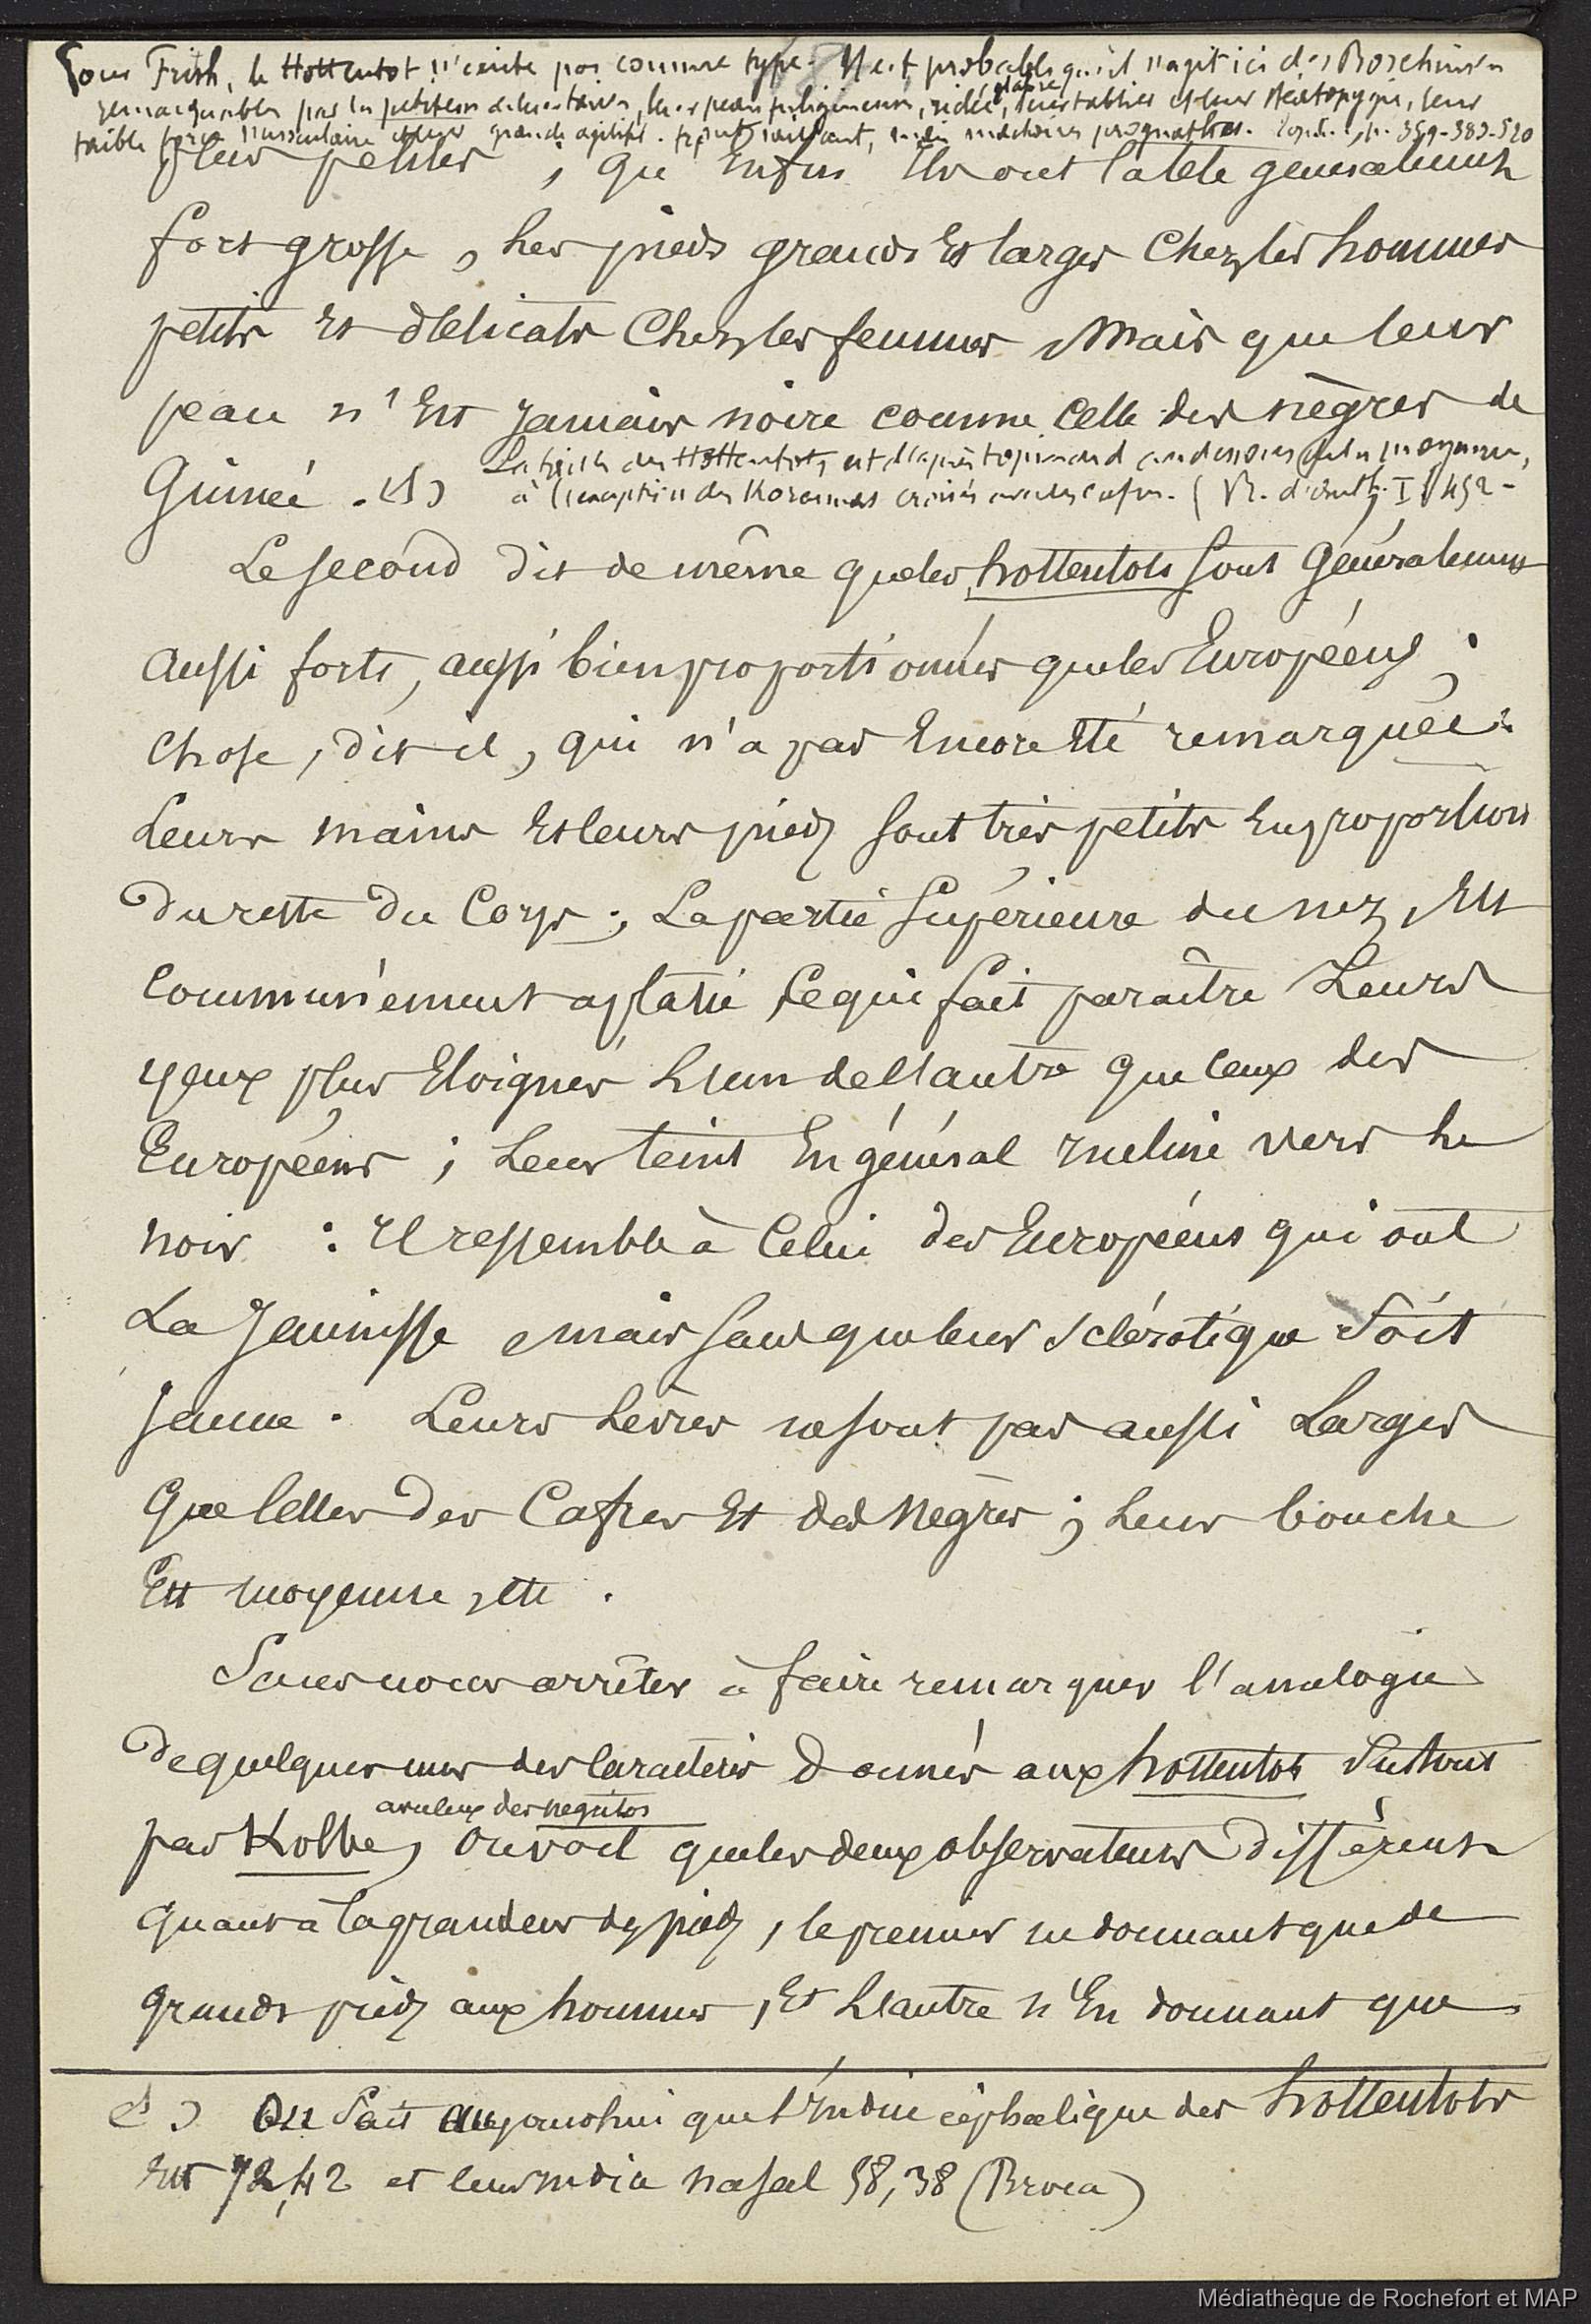 Pour Frish, le Hottentot n'existe pas comme type. Il est probable qu'il s'agit ici des Boschimen
remarquables par la petitesse de leur taille, leur peau fuligineuse, ridée, glabre, leur tablier et leur stéatopygie, leur
faible force musculaire et leur grande agilité. front saillant, enfin machoires prognathes. Topin., p. 359-383-520
plus petites, que Enfin Ils ont la tête généralement
fort grosse, Les pieds grands Et larges Chez les hommes
petits Et délicats Chez les femmes, Mais que leur
peau n'Est Jamais noire comme Celle des nègres de
Guinée. (1) La taille des Hottentots est d'après topinard au dessous de la moyenne,
à l'exception des Korannas croisés avec les cafres. (Rr. d'anth. I, 452-
Le second dit de même que les hottentots sont Généralement
Aussi forts, aussi bien proportionnés que les Européens;
Chose, dit-il, qui n'a pas Encore Eté remarquée.
Leurs mains Et leurs piedz sont très petits En proportion
Du reste Du Corps; La partie Supérieure du nez, Est
Communément applatie Ce qui fait paraître Leurs
yeux plus Eloignés L'un de L'autre que Ceux des
Européens; Leur teint En général Incline vers Le
noir : Il ressemble à Celui des Européens qui ont
La Jaunisse, mais sans que leur sclérotique Soit
Jaune. Leurs Lèvres ne sont pas aussi Larges
Que Celles Des Cafres Et des Nègres; Leur bouche
Est moyenne, etc.
Sans nous arrêter à faire remarquer l'analogie
De quelques uns des Caractères Donnés aux hottentots Surtout
avec ceux des negritos
par Kolbe, on voit que les deux observateurs Diffèrent
Quant à la grandeur des piedz, le premier ne donnant que de
Grands piedz aux hommes, Et L'autre n'En donnant que
(1) On Sait Aujourd'hui que l'Indice céphalique des hottentots
Est 72,42 et leur indice nasal 58,38 (Broca)
Médiathèque de Rochefort et MAP